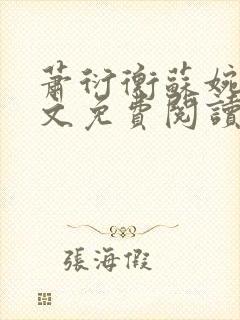 蕭衍衡蘇婉
文免費閱讀
張海假